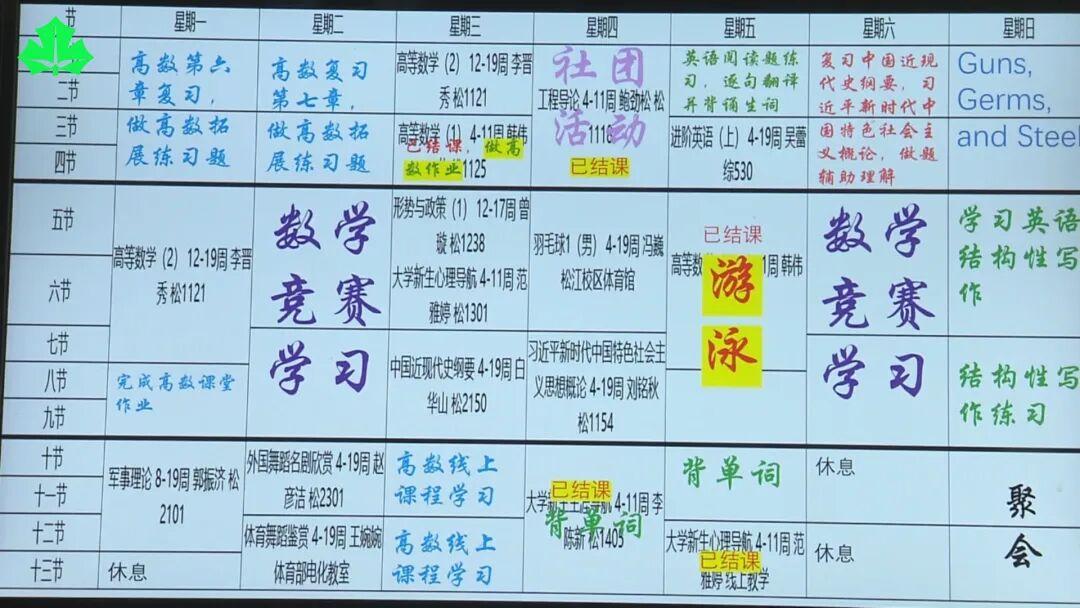 节 星期一 星期二 星期三 星期四 星期五 星期六 星期日
二节
三节
四节
高数第六
章复习，
做高数拓
展练习题
高数复习
第七章，
做高数拓
展练习题
高等数学（2）12-19周 李晋
秀 松1121
高等数学（1）4-11周 韩伟
已结课，做高
数作业
1125
社团
工程导论 4-11周 鲍劲松 松
活动
1116
已结课
英语阅读题练
习，逐句翻译
并背诵生词
进阶英语（上）4-19周 吴蕾
综530
复习中国近现
代史纲要，习
近平新时代中
国特色社会主
义概论，做题
辅助理解
Guns,
Germs,
and Steel
五节
六节
七节
八节
九节
高等数学（2）12-19周 李晋
秀 松1121
完成高数课堂
作业
数学
竞赛
学习
形势与政策（1）12-17周 曾
璇 松1238
大学新生心理导航 4-11周 范
雅婷 松1301
中国近现代史纲要 4-19周 白
华山 松2150
羽毛球1（男）4-19周 冯巍
松江校区体育馆
习近平新时代中国特色社会主
义思想概论 4-19周 刘铭秋
松1154
已结课
高等数
周 韩伟
游
泳
数学
竞赛
学习
学习英语
结构性写
作
结构性写
作练习
十节
十一节
十二节
十三节
军事理论 8-19周 郭振济 松
2101
休息
外国舞蹈名剧欣赏 4-19周 赵
彦洁 松2301
体育舞蹈鉴赏 4-19周 王婉婉
体育部电化教室
高数线上
课程学习
高数线上
课程学习
已结课
大学新生生涯导航 4-11周 李
背单词
陈新 松1405
背单词
大学新生心理导航 4-11周 范
已结课
雅婷 线上教学
休息
休息
聚
会